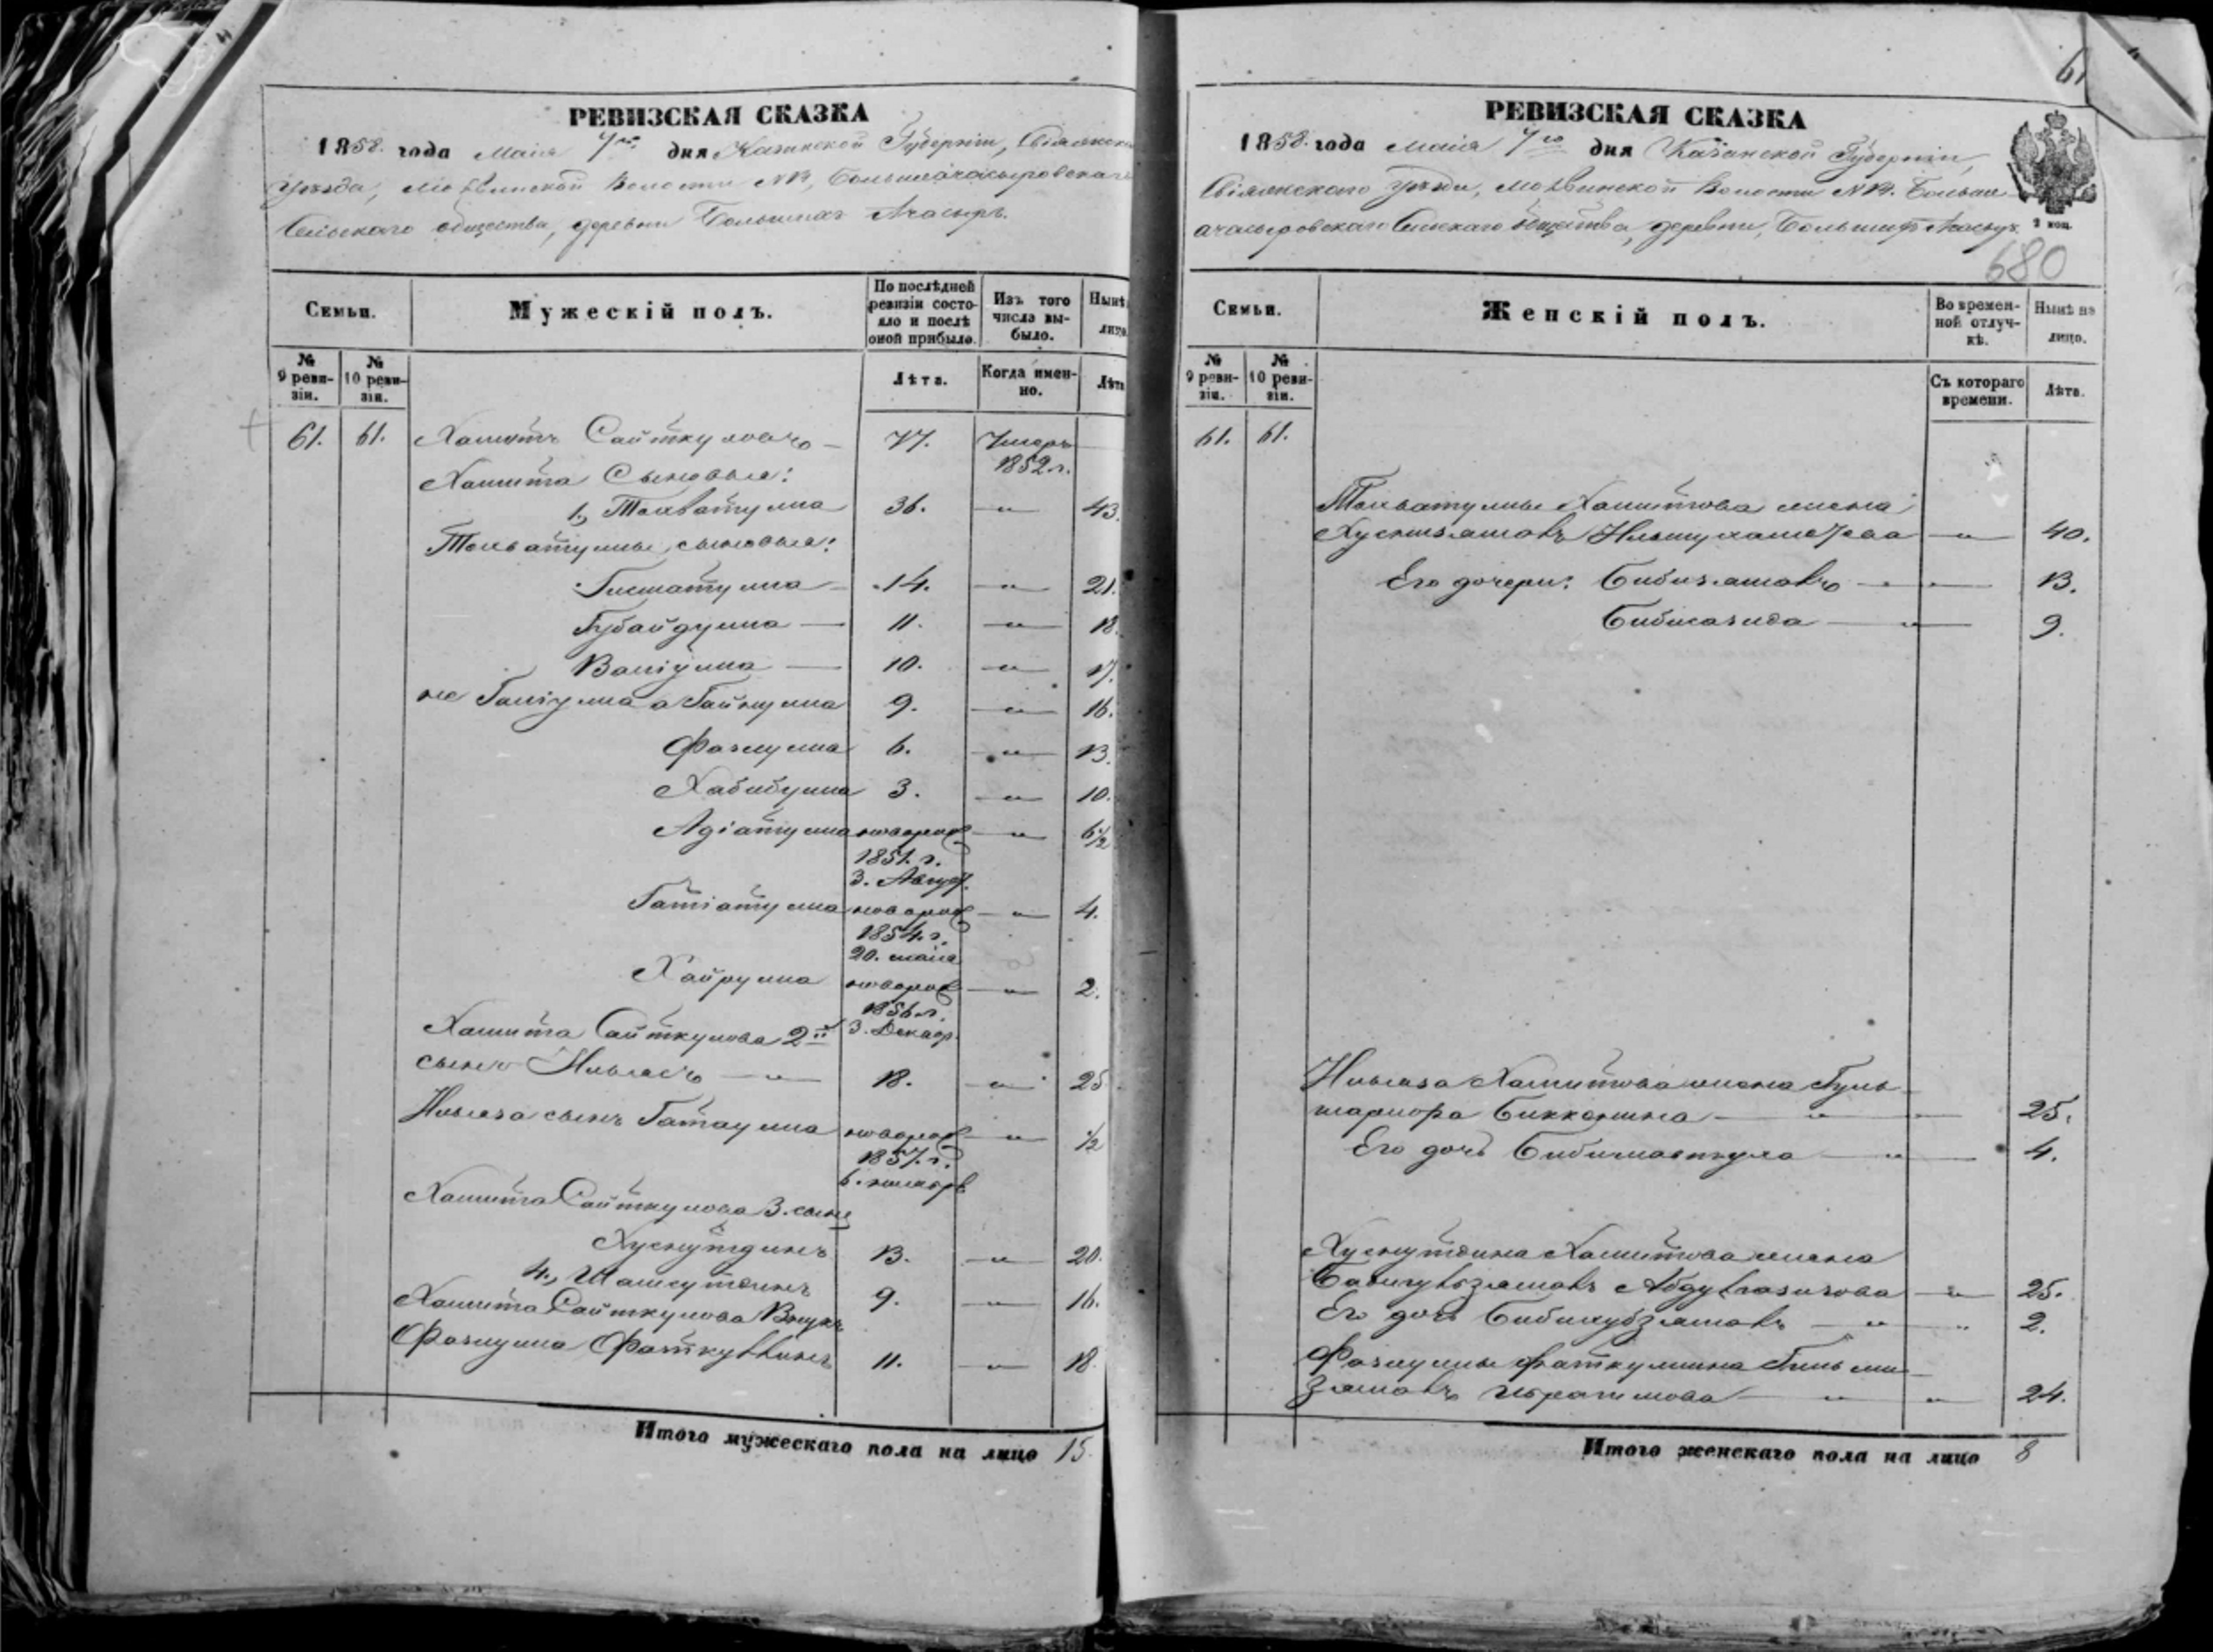 РЕВИЗСКАЯ СКАЗКА
1858. года Маія 7го дня Казанской Губерніи, Свіяжскаго
Уѣзда, Волости №, Большеачасыровскаго
Сельскаго общества, деревни Большихъ Ачасыръ.
Семьи.
Мужескій полъ.
По послѣдней ревизіи состо-
яло и послѣ
оной прибыло.
Изъ того
числа вы-
было.
Нынѣ
лицо
№
9 реви-
зіи.
№
10 реви-
зіи.
Лѣта.
Когда имен-
но.
Лѣта
61. 61. Хамитъ Сайткуловъ — 77. Умеръ
1852 г.
Хамита Сыновья:
1, Тохватулла 36. — " — 43.
Тохватуллы сыновья:
Гисматулла — 14. — " — 21.
Губайдулла — 11. — " — 18.
Валіулла — 10. — " — 17.
не Галіулла а Гайнулла 9. — " — 16.
Фазлулла 6. — " — 13.
Хабибулла 3. — " — 10.
Адіатулла новорож — " — 6½
1851. г.
3. Авгус.
Гатіатулла новорож — " — 4.
1854. г.
20. маія
Хайрулла новорож — " — 2.
1856 г.
3. Декабр.
Хамита Сайткулова 2й
сынъ Ильясъ — " — 18. — " — 25
Ильяза сынъ Гатаулла новорож — " — ½
1857. г.
6.
Хамита Сайткулова 3. сынъ
Хуснутдинъ 13. — " — 20.
4., Шамсутдинъ 9. — " — 16.
Хамита Сайткулова Внукъ
Фазлулла Фаткуллинъ 11. — " — 18.
Итого мужескаго пола на лицо 15.
61
РЕВИЗСКАЯ СКАЗКА
1858. года маія 7го дня Казанской Губерніи,
Свіяжскаго Уѣзда, Волости № Больше-
ачасыровскаго Сельскаго общества, деревни, Большихъ Ачасыръ.
2 коп.
680
Семьи.
Женскій полъ.
Во времен-
ной отлуч-
кѣ.
Нынѣ на
лицо.
№
9 реви-
зіи.
№
10 реви-
зіи.
Съ котораго
времени.
Лѣта.
61. 61.
Тохватуллы Хамитова жена
Хуснизямалъ — " — 40.
Его дочери: Бибизямалъ — " — 13.
Бибисазида — " — 9.
Ильяза Хамитова жена Гуль-
Биккенина — " — 25.
Его дочь — " — 4.
Хуснутдина Хамитова жена
Абдулгазизова — " — 25.
Его дочь — " — 2.
Фазлуллы Фаткуллина
Ибрагимова — " — 24.
Итого женскаго пола на лицо 8